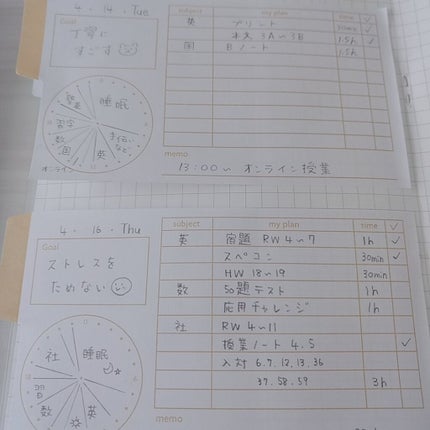 4 ・ 14 ・ Tue
Goal
丁寧に
すごす
睡眠
習字
数
国
英
手伝い
など
オンライン
subject my plan time ✓
英 プリント 30min ✓
本文 3A〜3B 1.5h ✓
国 Bノート 1.5h
memo
13:00〜 オンライン授業
4 ・ 16 ・ Thu
Goal
ストレスを
ためない
社
睡眠
習
数
英
subject my plan time ✓
英 宿題 RW 4〜7 1h ✓
スペコン 30min ✓
HW 18〜19 30min
数 50題テスト 1h
応用チャレンジ 1h
社 RW 4〜11
授業ノート 4.5 ✓
入対 6.7.12.13.36
37.58.59 3h
memo